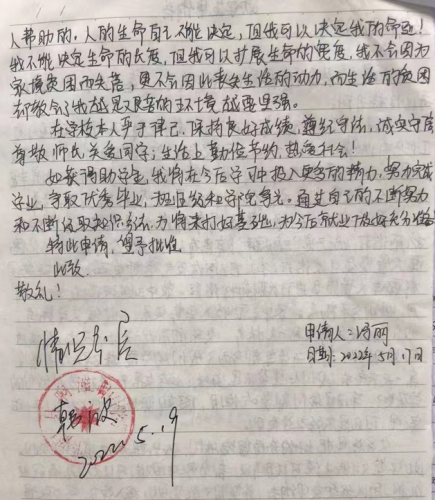 人帮助的,人的生命自己不能决定,但我可以决定我的命运!
我不能决定生命的长度,但我可以扩展生命的宽度,我不会因为
家境贫困而失落,更不会因此丧失生活的动力,而生活的贫困
却教会了我越是艰苦的环境越要坚强。
在学校本人严于律己,保持良好成绩,遵纪守法,诚实守信
尊敬师长关爱同学;生活上勤俭节约,热爱社会!
如获得助学金,我将在今后学习中投入更多的精力,努力完成
学业,争取优秀毕业,为班级和学院争光。通过自己的不断努力
和不断汲取知识,为将来打好基础,为今后就业做好充分准备
特此申请,望予批准
此致
敬礼!
情况属实
申请人:冯丽
日期:2022年5月17日
2022.5.19